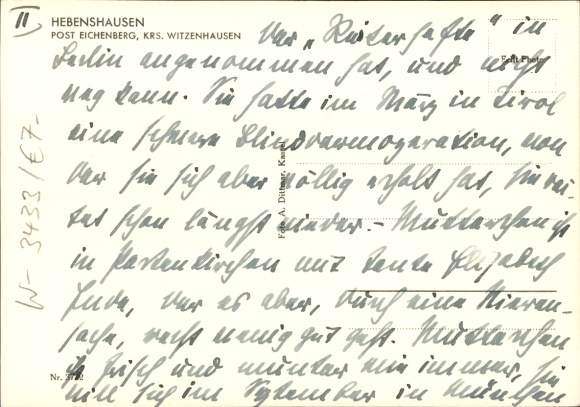 II
HEBENSHAUSEN
POST EICHENBERG, KRS. WITZENHAUSEN
Echt Photo
der „Reiterhefte" in
Berlin angenommen hat, und nicht
weg kann. Sie hatte im März in Tirol
eine schwere Blinddarmoperation, von
der sie sich aber völlig erholt hat, sie rei-
tet schon längst wieder. – Mutterchen ist
in Partenkirchen mit Tante Elisabeth
der es aber, durch eine Nieren-
sache, recht wenig gut geht. Mutterchen
ist frisch und munter wie immer, sie
will sich im September in München
Foto A. Dittmar, Kassel
W- 3433 / E7-
Nr.